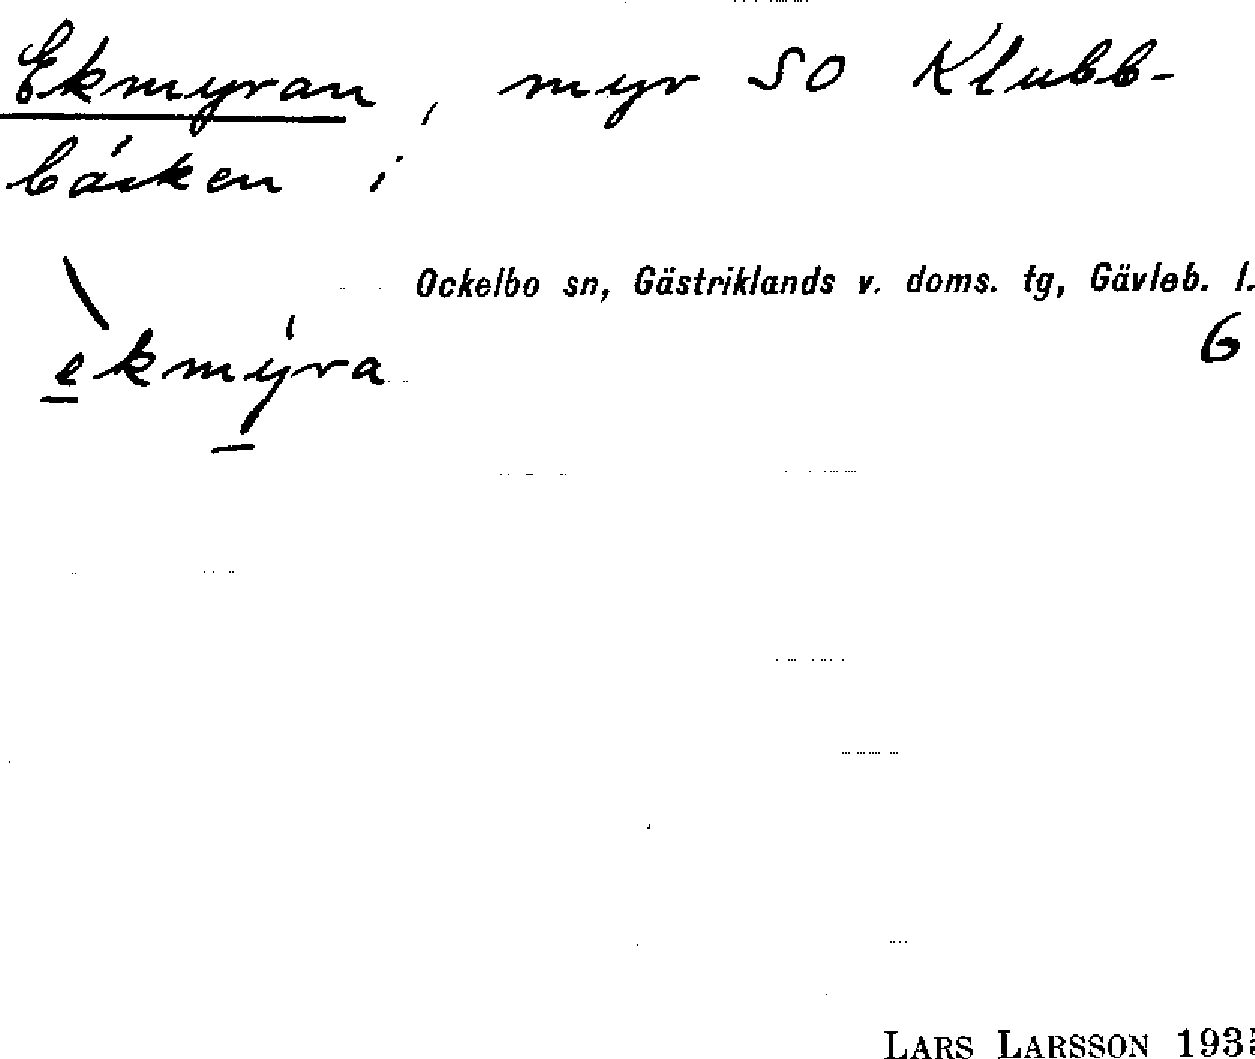 Ekmyran, myr SO Klubb-
bäcken i
Ockelbo sn, Gästriklands v. doms. tg, Gävleb. l.
6
ekmyra
LARS LARSSON